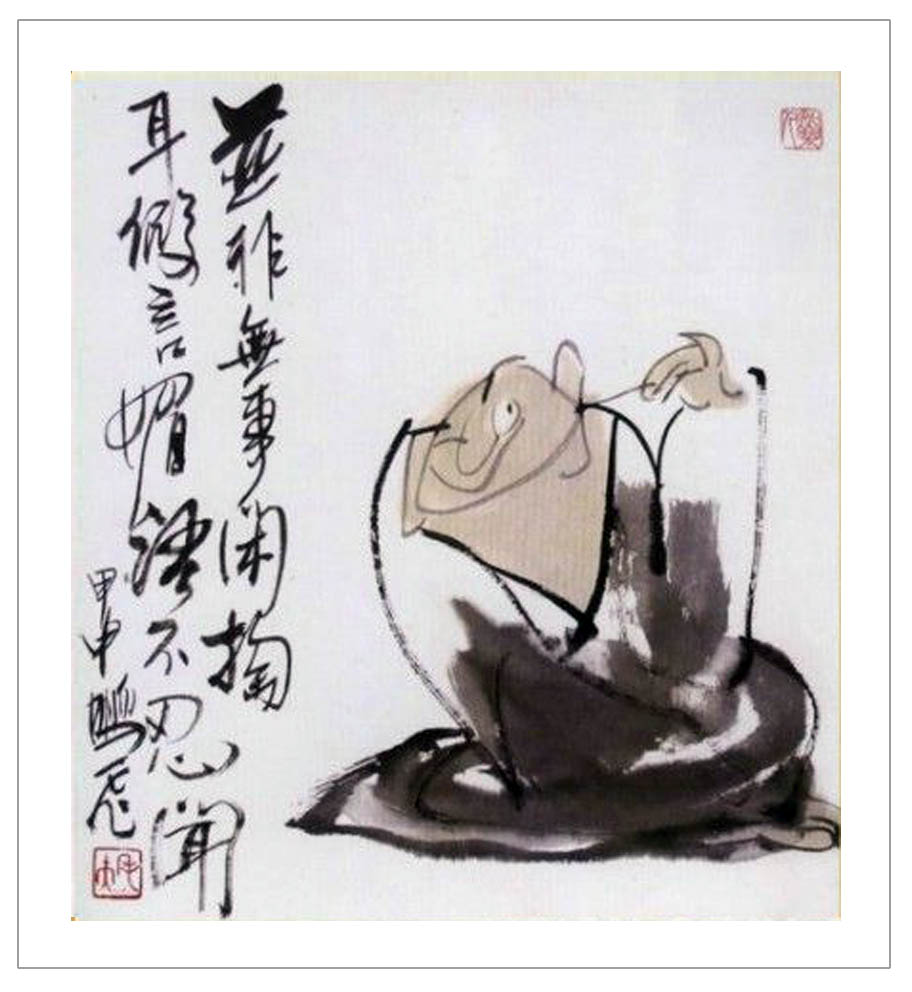 並非無事閑掏
耳假言媚語不忍聞
甲申